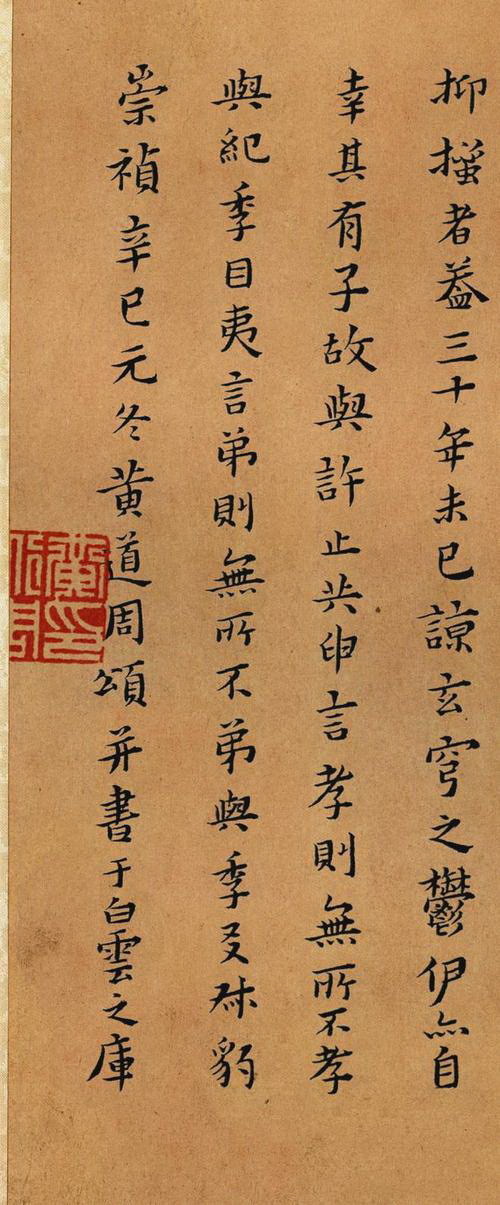 抑搔者葢三十年未已諒玄穹之鬱伊亦自
幸其有子故與許止共申言孝則無所不孝
與紀季目夷言弟則無所不弟與季友叔豹
崇禎辛巳元冬黄道周頌并書于白雲之庫